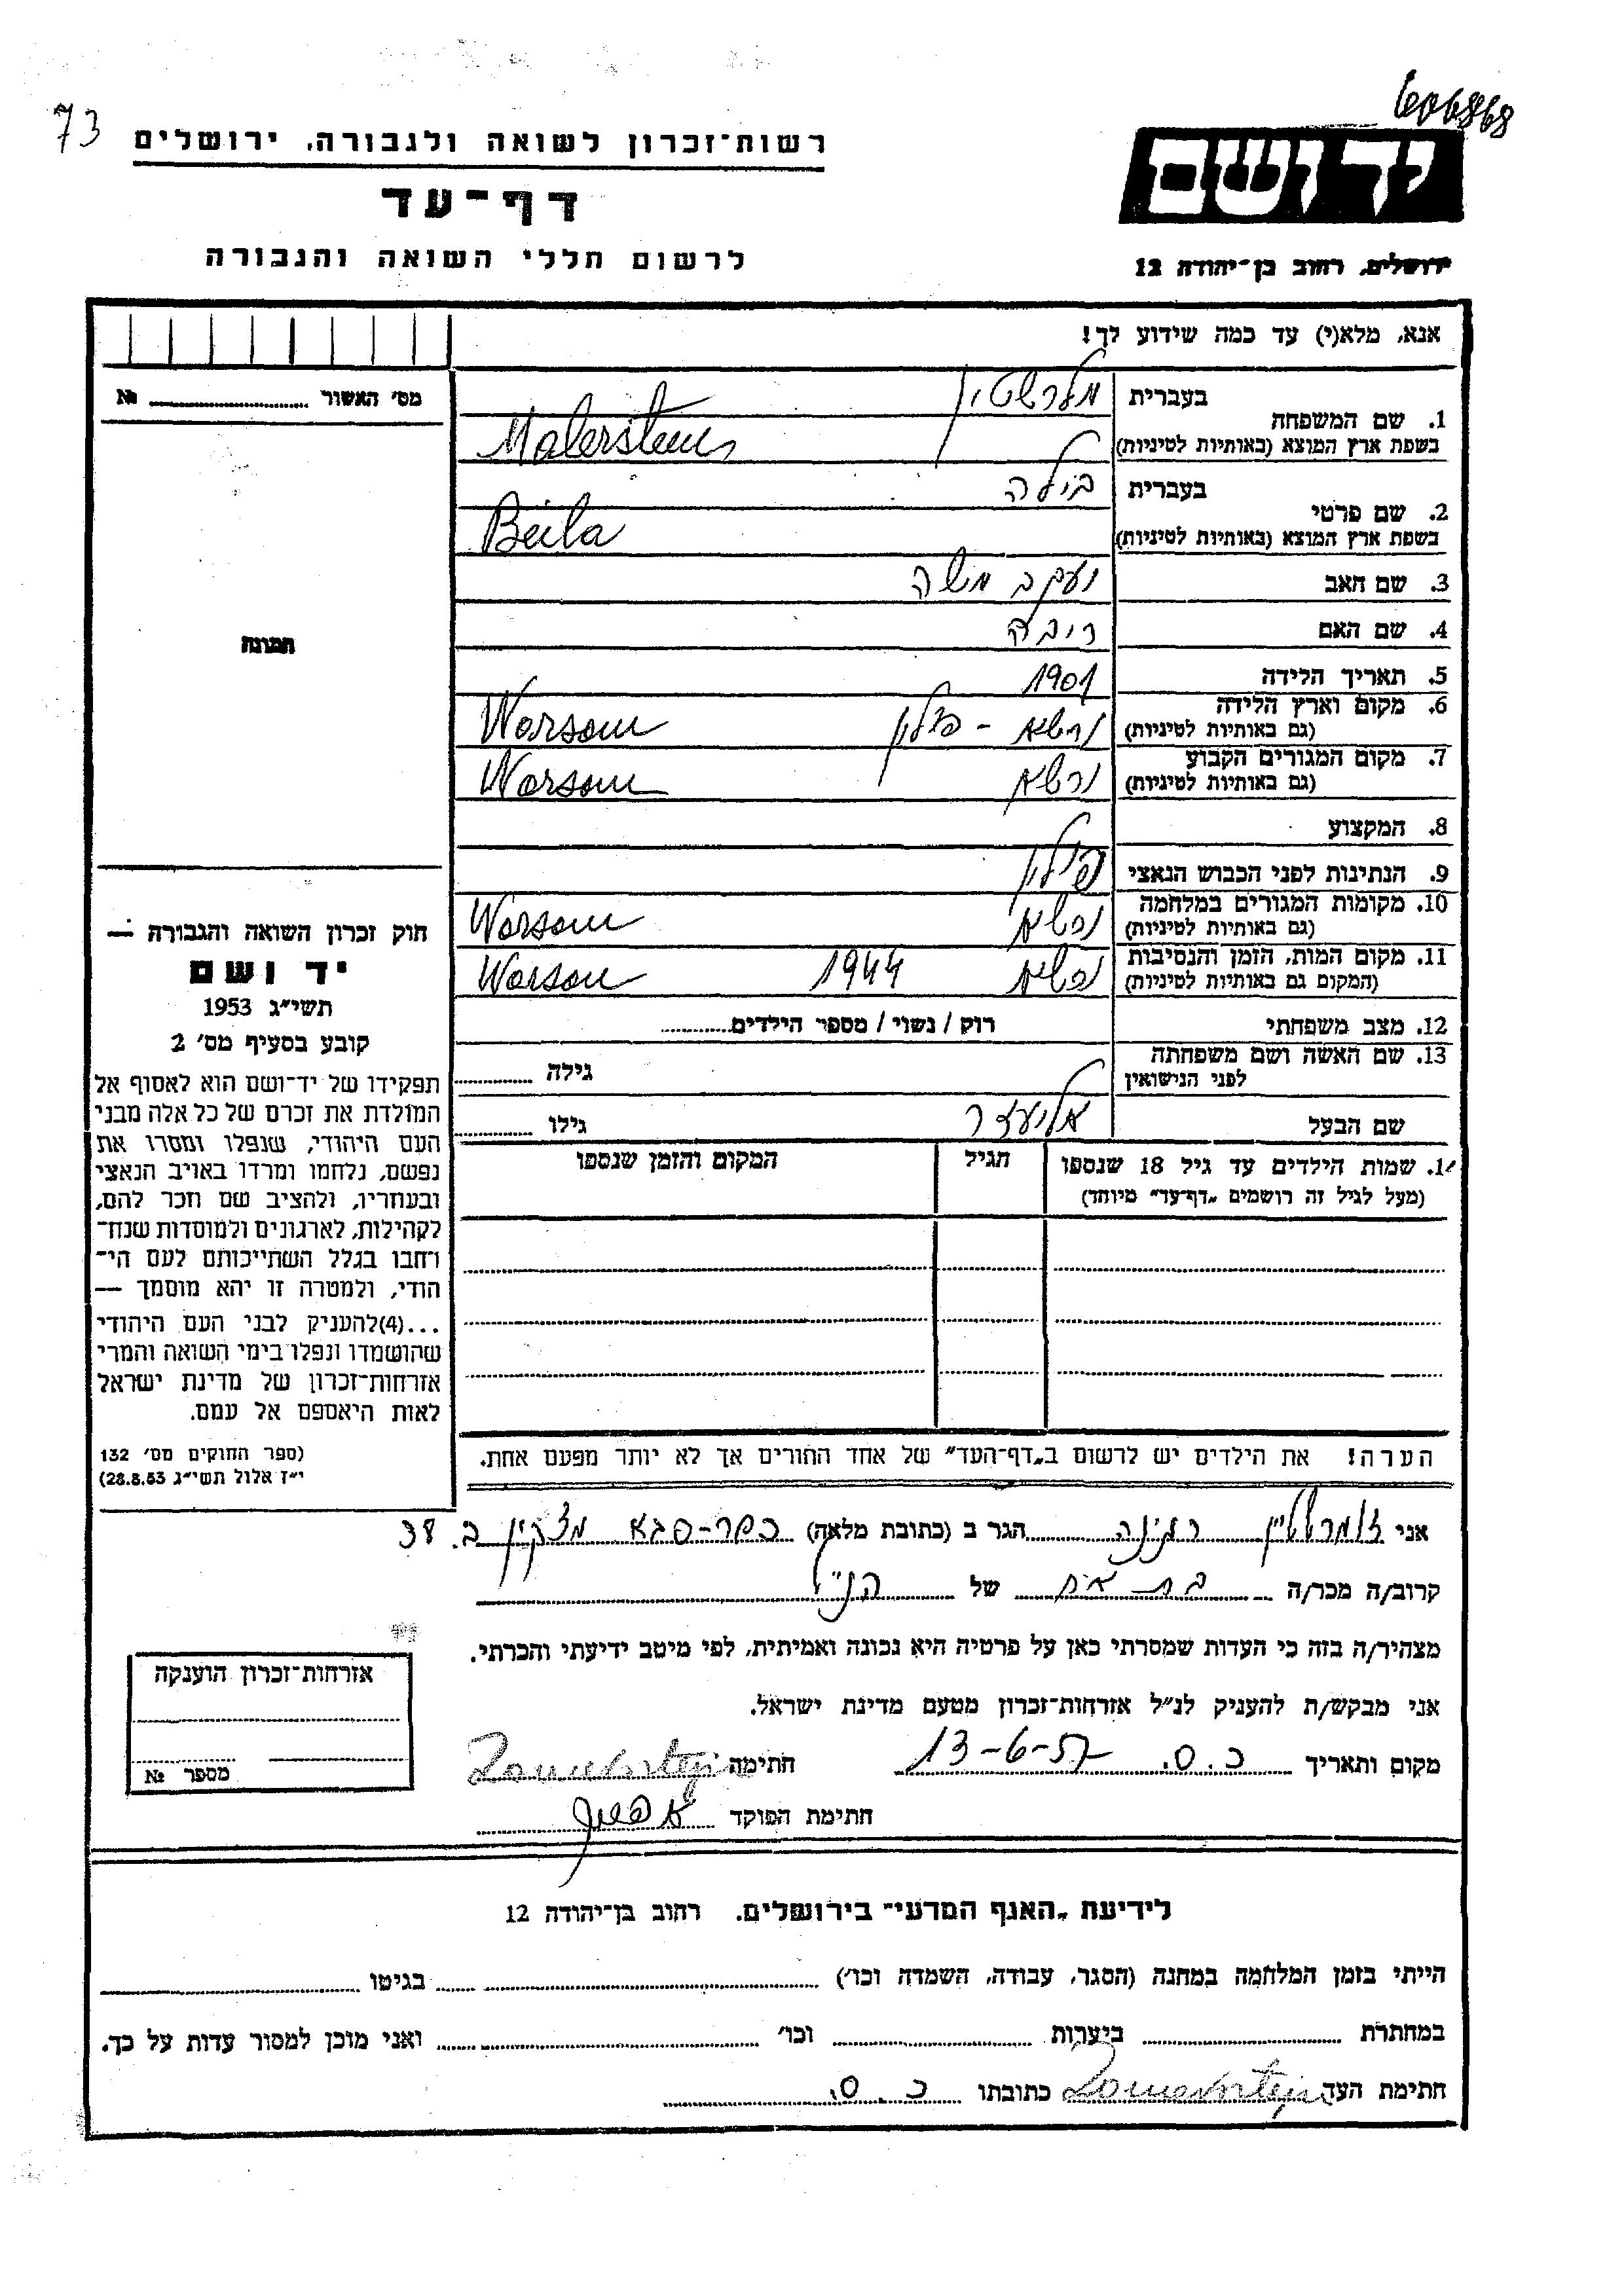 73
606868
רשות־זכרון לשואה ולגבורה, ירושלים
דף־עד
לרשום חללי השואה והגבורה
יד ושם
ירושלים, רחוב בן־יהודה 12
אנא, מלא(י) עד כמה שידוע לך!
מס׳ האשור № 
תמונה
1. שם המשפחה
בעברית מלרשטין
בשפת ארץ המוצא (באותיות לטיניות) Malerstein
2. שם פרטי
בעברית בילה
בשפת ארץ המוצא (באותיות לטיניות) Beila
3. שם האב יעקב משה
4. שם האם ריבה
5. תאריך הלידה 1901
6. מקום וארץ הלידה ורשא - פולין Warsaw
(גם באותיות לטיניות)
7. מקום המגורים הקבוע ורשא Warsaw
(גם באותיות לטיניות)
8. המקצוע
9. הנתינות לפני הכבוש הנאצי פולין
10. מקומות המגורים במלחמה ורשא Warsaw
(גם באותיות לטיניות)
11. מקום המות, הזמן והנסיבות ורשא 1944 Warsaw
(המקום גם באותיות לטיניות)
12. מצב משפחתי רוק / נשוי / מספר הילדים
13. שם האשה ושם משפחתה
לפני הנישואין גילה
שם הבעל אליעזר גילו
1. שמות הילדים עד גיל 18 שנספו הגיל המקום והזמן שנספו
(מעל לגיל זה רושמים „דף־עד״ מיוחד)
הערה! את הילדים יש לרשום ב„דף־העד״ של אחד ההורים אך לא יותר מפעם אחת.
חוק זכרון השואה והגבורה —
יד ושם
תשי״ג 1953
קובע בסעיף מס׳ 2
תפקידו של יד־ושם הוא לאסוף אל
המולדת את זכרם של כל אלה מבני
העם היהודי, שנפלו ומסרו את
נפשם, נלחמו ומרדו באויב הנאצי
ובעוזריו, ולהציב שם וזכר להם,
לקהילות, לארגונים ולמוסדות שנח־
רבו בגלל השתייכותם לעם הי־
הודי, ולמטרה זו יהא מוסמך —
...(4)להעניק לבני העם היהודי
שהושמדו ונפלו בימי השואה והמרי
אזרחות־זכרון של מדינת ישראל
לאות היאספם אל עמם.
(ספר החוקים מס׳ 132
י״ז אלול תשי״ג 28.8.53)
אני זומרשטיין רגינה הגר ב (כתובת מלאה) כפר-סבא ב. 38
קרוב/ה מכר/ה בת אח של הנ״ל
מצהיר/ה בזה כי העדות שמסרתי כאן על פרטיה היא נכונה ואמיתית, לפי מיטב ידיעתי והכרתי.
אני מבקש/ת להעניק לנ״ל אזרחות־זכרון מטעם מדינת ישראל.
מקום ותאריך כ.ס. 13-6-57 חתימה Zomersztejn
חתימת הפוקד
אזרחות־זכרון הוענקה
מספר №
לידיעת „האגף המדעי״ בירושלים. רחוב בן־יהודה 12
הייתי בזמן המלחמה במחנה (הסגר, עבודה, השמדה וכו׳) בגיטו
במחתרת ביערות וכו׳ ואני מוכן למסור עדות על כך.
חתימת העד Zomersztejn כתובתו כ.ס.